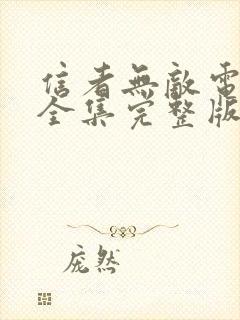 信者無敵電
全集完整版
庞然